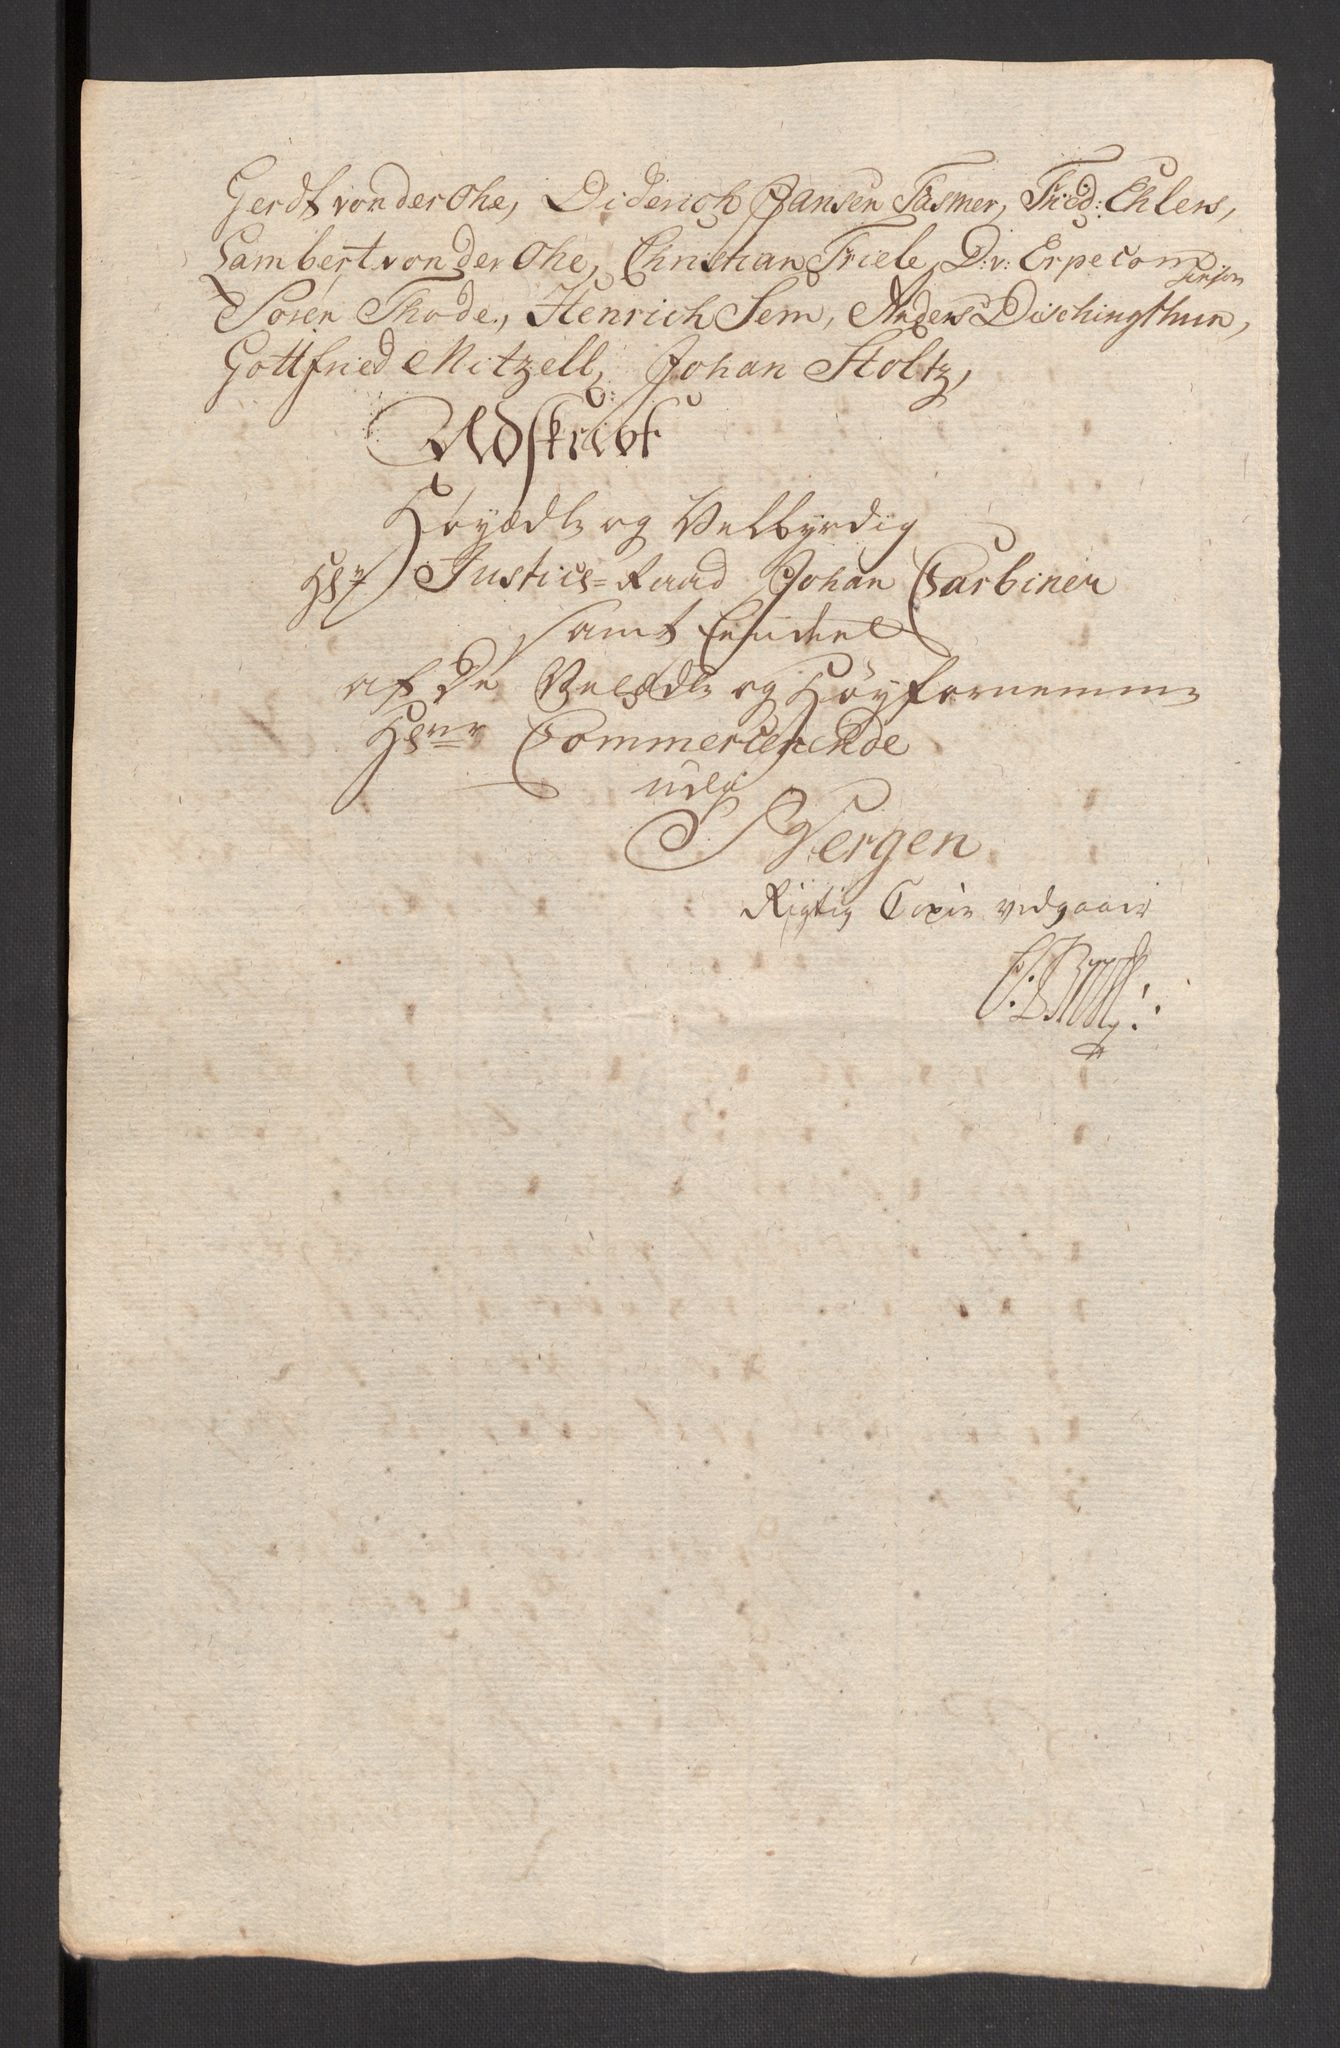 Gerdt von der Ohe, Diderich Jansen Fasmer, Fried: Ehlers,
Lambert von der Ohe, Christian Friele, D: v: Erpecom
Senion
Soren Thode, Henrich Sem, Anders Dischingthun,
Gottfried Mitzell, Johan Stoltz,
Udskrivt
Höyædle og Velbyrdig
Hr Justice=Raad Johan Garbiner
samt Eendeel
af De Velædle og Höyfornemme
Herr Commercierende
udi
Bergen
Rigtig Copie vedgaaer